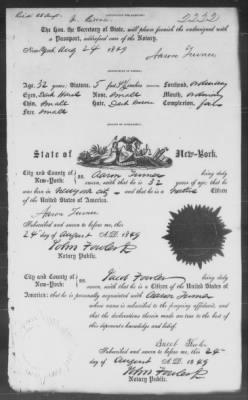 2222
The Hon. the Secretary of State, will please furnish the undersigned with
a Passport, addressed care of the Notary.
New York Aug 24 1869
Aaron Turner
Age, 32 years. Stature, 5 feet Inches Forehead, ordinary
Eyes, Nose, Small Mouth, ordinary
Chin, Small Hair, Dark Brown Complexion, fair
Face Small
State of New-York.
City and County of New-York: ss. Aaron Turner being duly
sworn, said that he is 32 years of age; that he
was born in New York City a native Citizen
of the United States of America.
Aaron Turner
Subscribed and sworn to before me, this
24 day of August A.D. 1869
John Fowler Jr
Notary Public.
City and County of New-York: ss. Jacob Fowler being duly
sworn, said that he is a Citizen of the United States of
America: that he is personally acquainted with Aaron Turner
whose name is subscribed to the foregoing affidavit, and
that the declarations therein made are true to the best of
this deponent's knowledge and belief.
Subscribed and sworn to before me, this 24
day of August A.D. 1869
John Fowler Jr
Notary Public.